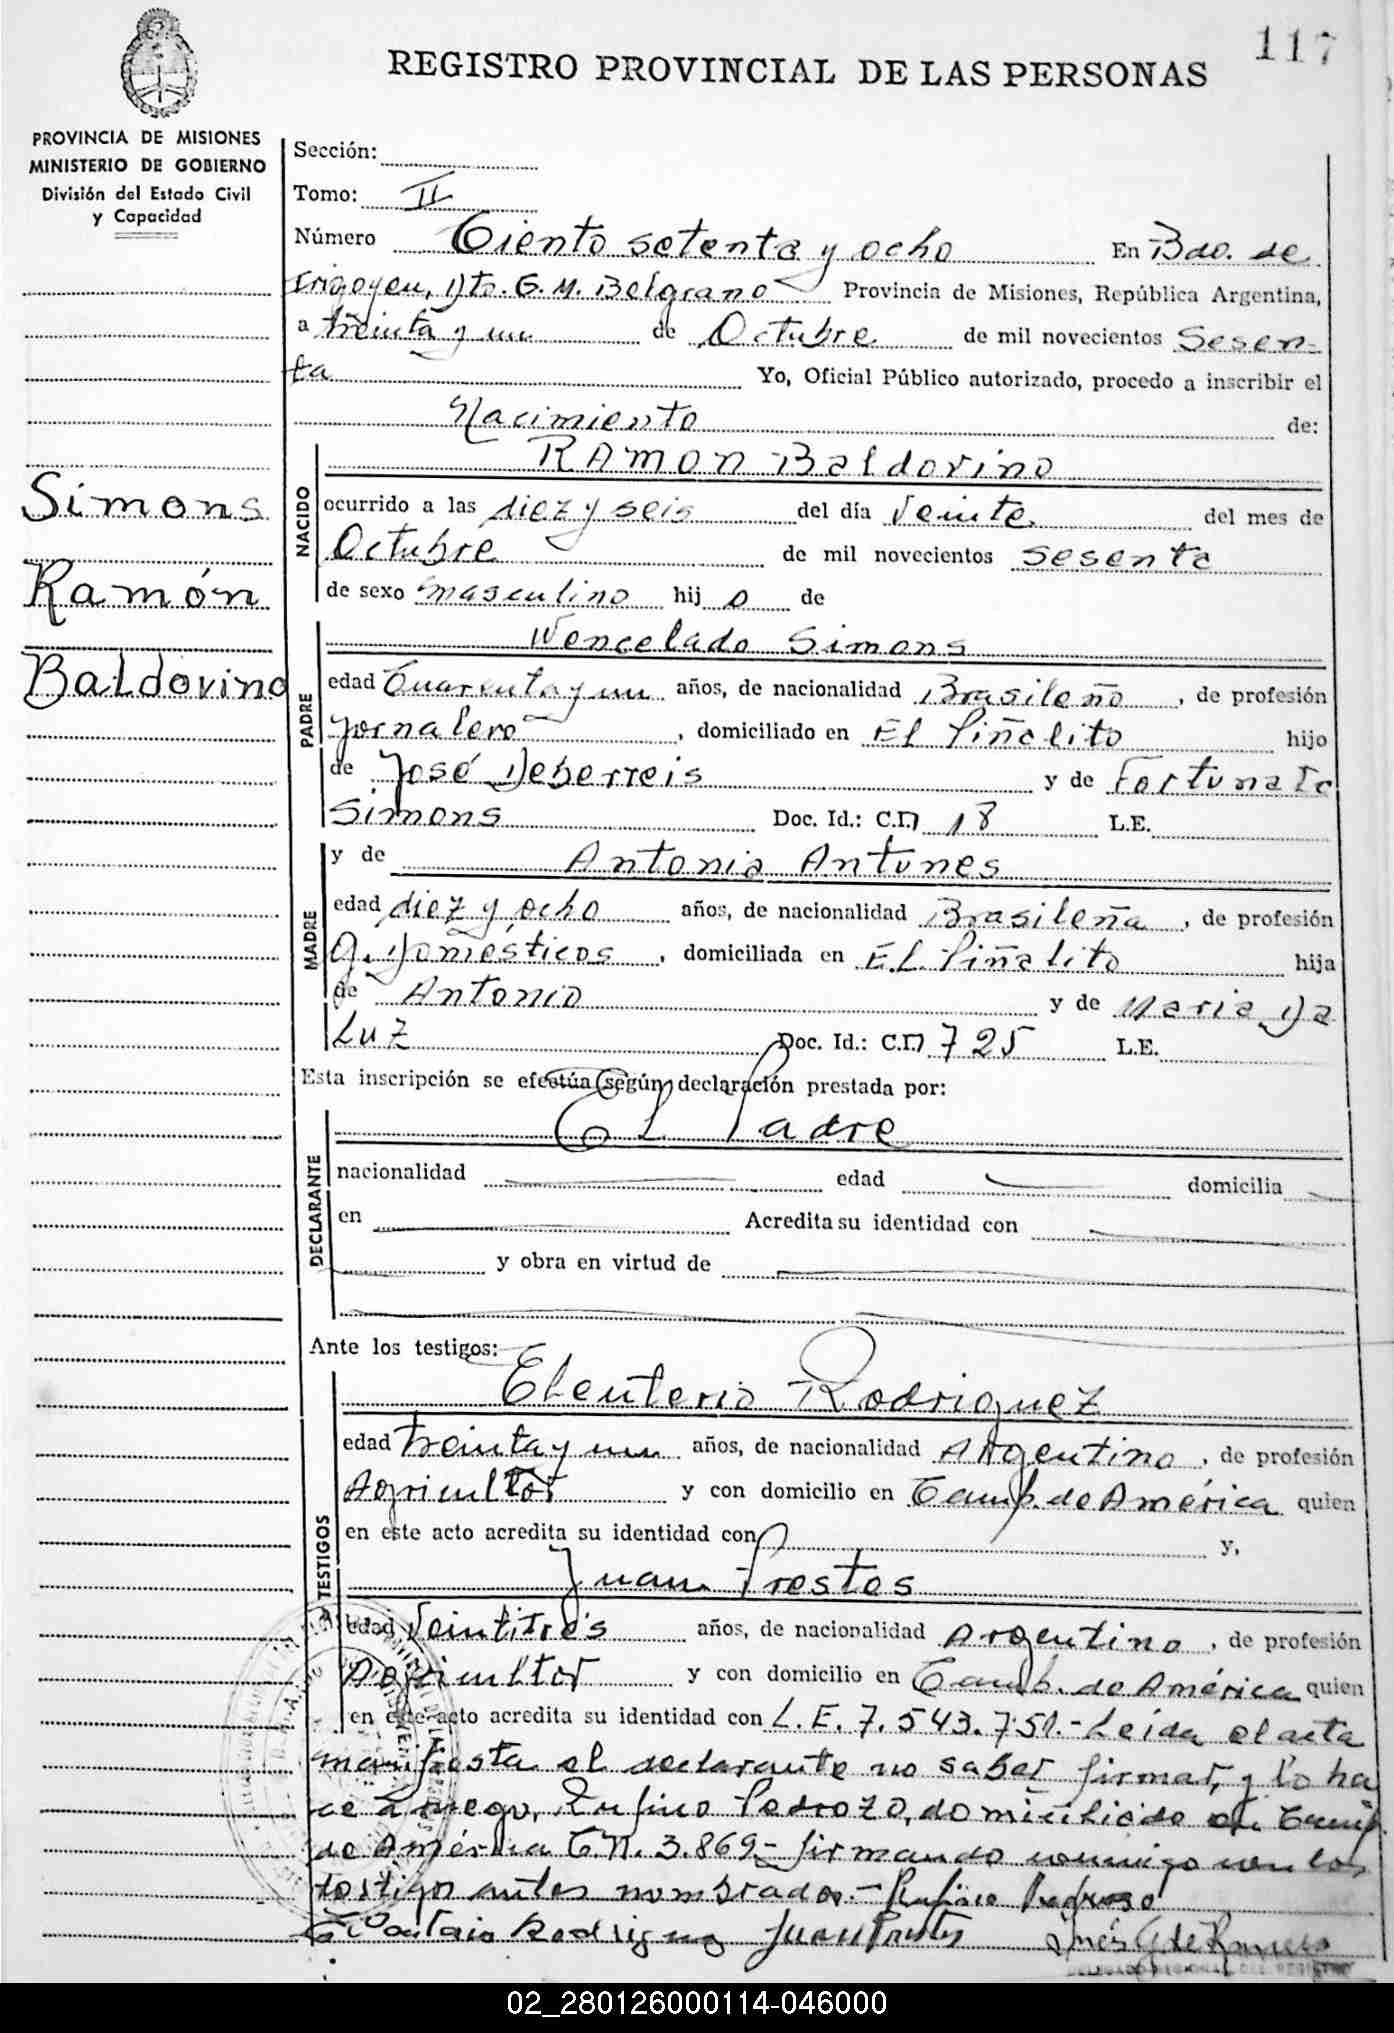 117
REGISTRO PROVINCIAL DE LAS PERSONAS
PROVINCIA DE MISIONES
MINISTERIO DE GOBIERNO
División del Estado Civil
y Capacidad
Simons
Ramón
Baldovino
Sección:
Tomo: II
Número Ciento setenta y ocho En Bdo. de
Irigoyen, Dto. G. M. Belgrano Provincia de Misiones, República Argentina,
a treinta y un de Octubre de mil novecientos Sesen-
ta Yo, Oficial Público autorizado, procedo a inscribir el
Nacimiento de:
NACIDO
RAMON Baldovino
ocurrido a las diez y seis del día Veinte del mes de
Octubre de mil novecientos sesenta
de sexo masculino hij o de
PADRE
Wencelado Simons
edad Cuarenta y un años, de nacionalidad Brasileño, de profesión
Jornalero, domiciliado en El Piñalito hijo
de José Deberreis y de Fortunato
Simons Doc. Id.: C.I. 18 L.E.
MADRE
y de Antonia Antunes
edad diez y ocho años, de nacionalidad Brasileña, de profesión
Q. Domésticos, domiciliada en El Piñalito hija
de Antonio y de Maria Da
Luz Doc. Id.: C.I. 725 L.E.
Esta inscripción se efectúa según declaración prestada por:
DECLARANTE
El Padre
nacionalidad edad domicilia
en Acredita su identidad con
y obra en virtud de
Ante los testigos:
TESTIGOS
Eleuterio Rodriguez
edad treinta y un años, de nacionalidad Argentino, de profesión
Agricultor y con domicilio en Camp. de América quien
en este acto acredita su identidad con y,
Juan Prestes
edad Veintitrés años, de nacionalidad Argentino, de profesión
Agricultor y con domicilio en Camp. de América quien
en este acto acredita su identidad con L.E. 7.543.751.- Leída el acta
manifiesta el declarante no saber firmar, y lo ha
ce a ruego, Rufino Pedrozo, domiciliado en Camp.
de América C.N. 3.869- firmando conmigo con los
testigo antes nombrados.- Rufino Pedrozo
Rodriguez Juan Prestes Inés G. de Romero
DELEGADO REGIONAL DEL REGISTRO
02_280126000114-046000